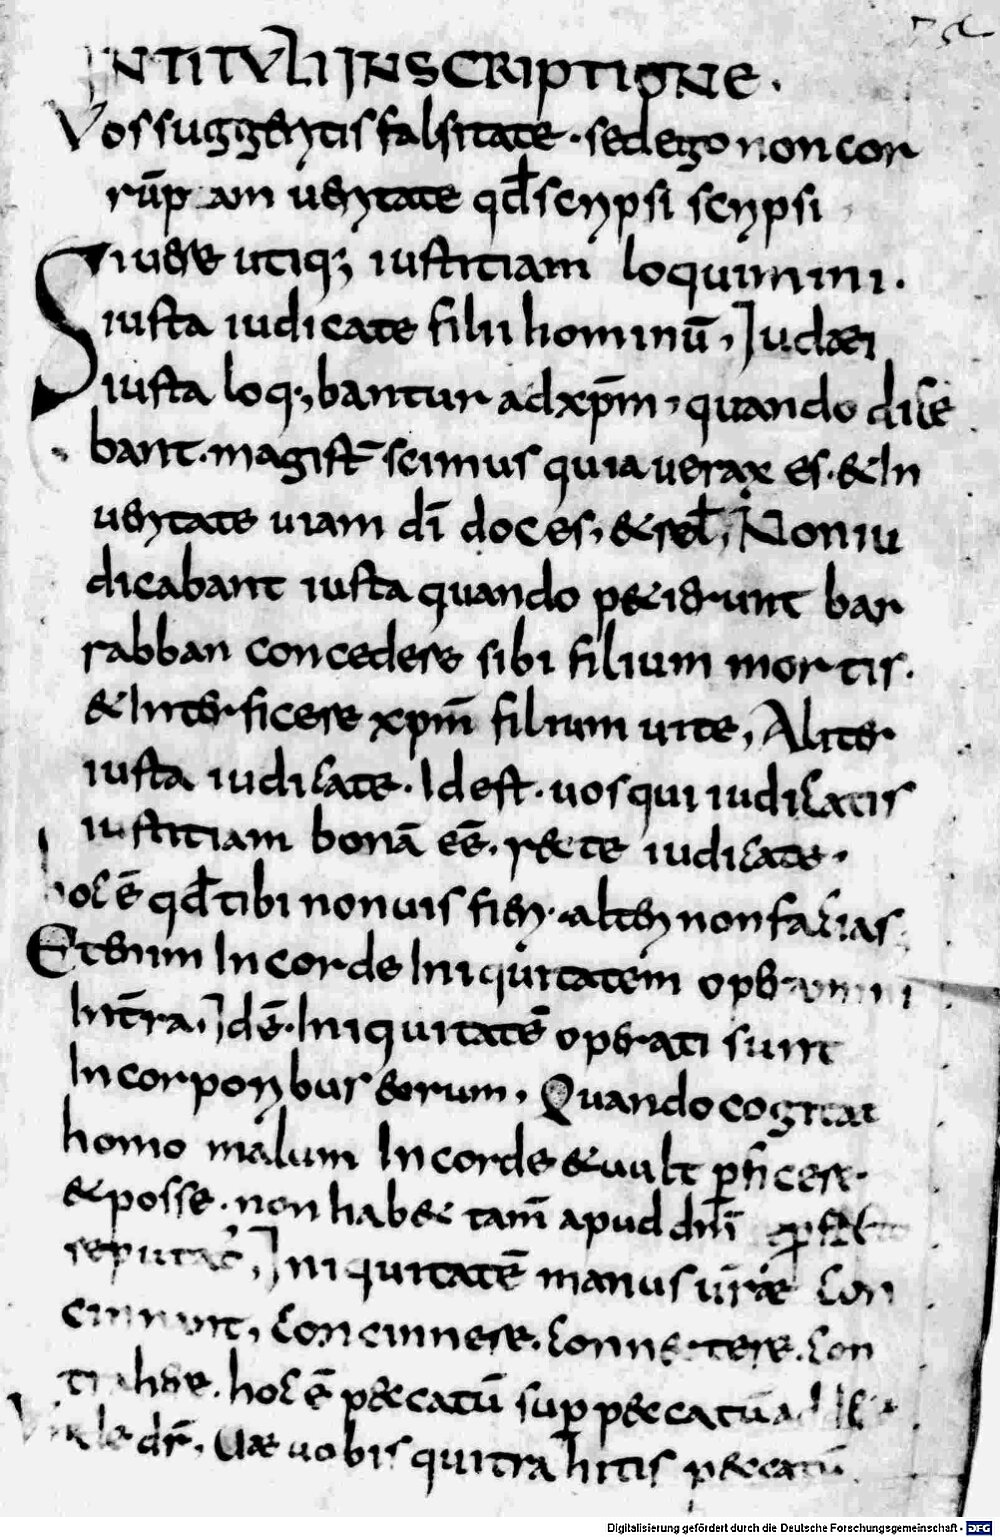 IN TITVLI INSCRIPTIONE.
Vos suggeritis falsitate. sed ego non cor
rūp am veritate qđ scripsi scripsi
Si uere utiq; iustitiam loquimini.
iusta iudicate filii hominū, Iudaei
iusta loq;bantur ad xp̄m, quando dice
bant. magist̄ scimus quia uerax es. & in
ueritate uiam dī doces, & rel̄, Non iu
dicabant iusta quando petierunt bar
rabban concedere sibi filium mortis.
& interficere xpm̄ filium uite, Aliter
iusta iudicate. Id est. uos qui iudicatis
iustitiam bonā eē. recte iudicate.
hoc ē qđ tibi non uis fieri. alteri non facias.
Etenim in corde iniquitatem operamini
In tr̄ra, Id ē. iniquitatē operati sunt
In corporibus eorum, Quando cogitat
homo malum in corde & uult perficere.
& posse. non habet tam̄ apud dm̄
reputat, Iniquitatē manus ur̄ae con
cinnunt, concinnere. connectere. con
trahere. hoc ē peccatū super peccatū
Unde dr̄. Uae uobis qui trahitis peccatū
Digitalisierung gefördert durch die Deutsche Forschungsgemeinschaft - DFG